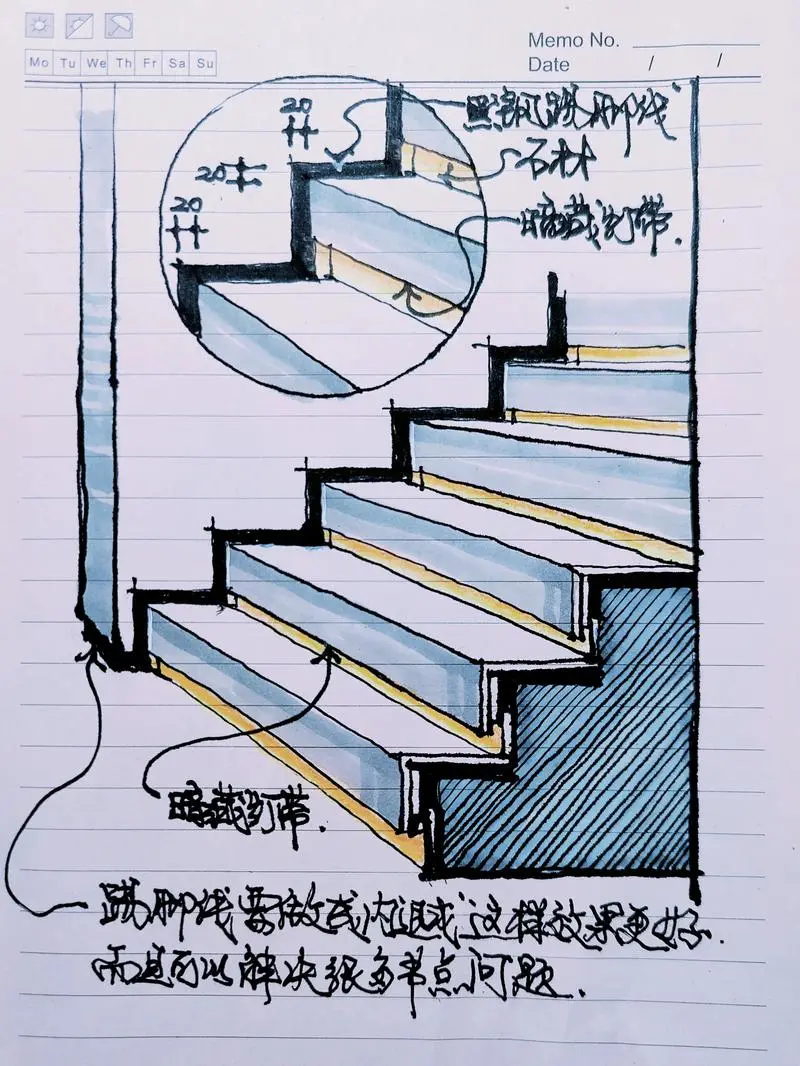 Memo No.
Mo Tu We Th Fr Sa Su
Date / /
20
踢脚线
20
石材
20
暗藏灯带.
暗藏灯带.
踢脚线要做成内退式 这样效果更好.
而且可以解决很多节点问题.